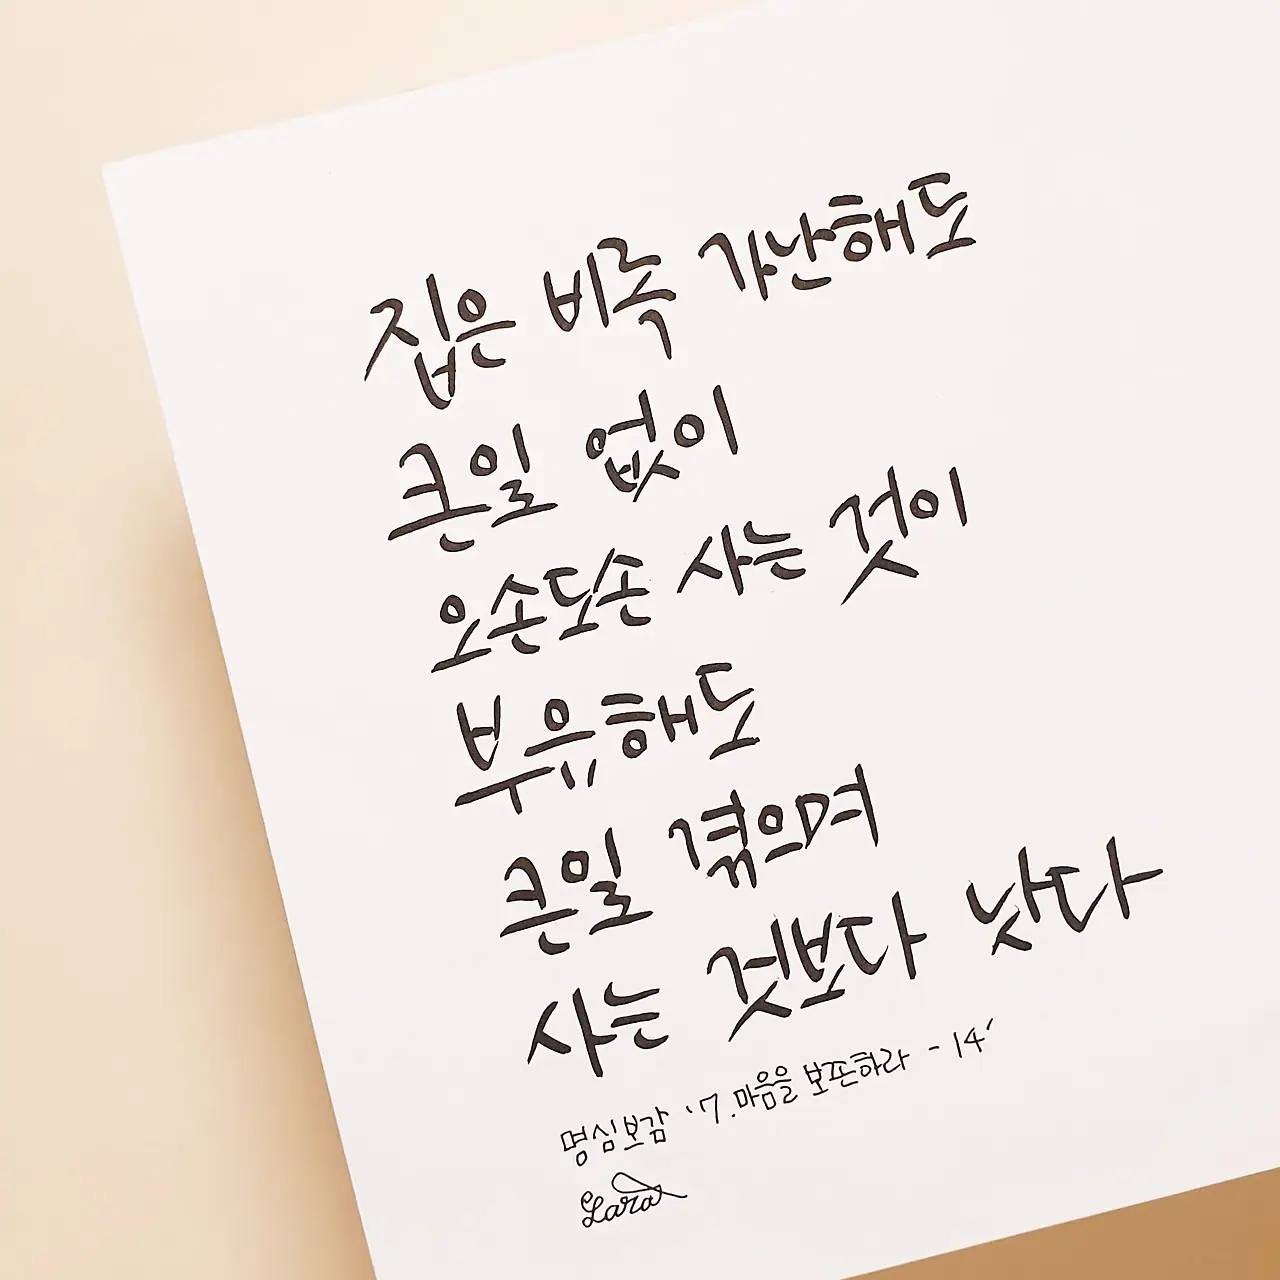 집은 비록 가난해도
큰일 없이
오손도손 사는 것이
부유해도
큰일 겪으며
사는 것보다 낫다
명심보감 '7.마음을 보존하라 - 14'
Lara